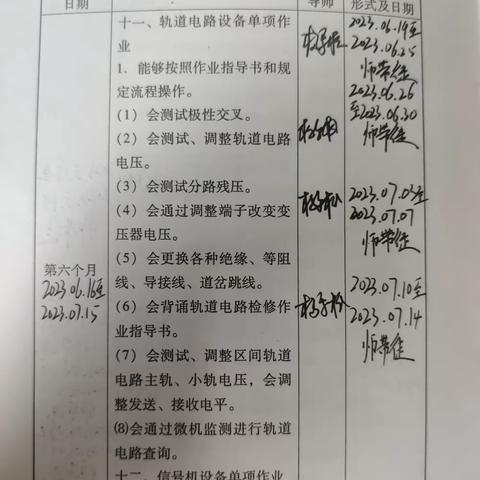 日期
导师
形式及日期
十一、轨道电路设备单项作
业
1．能够按照作业指导书和规
定流程操作。
（1）会测试极性交叉。
（2）会测试、调整轨道电路
电压。
（3）会测试分路残压。
（4）会通过调整端子改变变
压器电压。
（5）会更换各种绝缘、等阻
线、导接线、道岔跳线。
（6）会背诵轨道电路检修作
业指导书。
（7）会测试、调整区间轨道
电路主轨、小轨电压，会调
整发送、接收电平。
⑻会通过微机监测进行轨道
电路查询。
十二、信号机设备单项作业
第六个月
2023.06.16至
2023.07.15
2023.06.19至
2023.06.25
师带徒
2023.06.26
至2023.06.30
师带徒
2023.07.03至
2023.07.07
师带徒
2023.07.10至
2023.07.14
师带徒